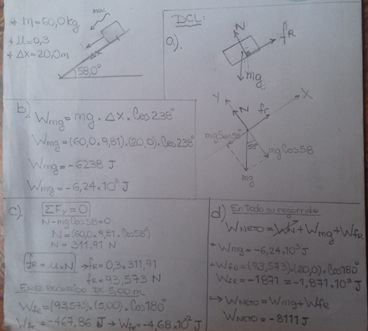 * M=60,0kg
* M=0,3
* ΔX=20,0m
58,0°
DCL:
a).
N
fR
mg
Y
X
N
fr
mgSen58°
58°
mgCos58
mg
b) Wmg=mg.ΔX.Cos238°
Wmg=(60,0.9,81).(20,0).Cos238°
Wmg=-6238 J
Wmg=-6,24.10³ J
c). ΣFy=0
N-mgCos58=0
N=(60,0.9,81.Cos58°)
N=311,91 N
fR=μ.N → fR=0,3.311,91
fR=93,573 N
En el recorrido de 5,00 m.
WfR=(93,573).(5,00).Cos180°
WfR=-467,86 J → WfR=-4,68.10² J
d) En todo su recorrido
WNETO= +Wmg+WfR
* Wmg=-6,24.10³ J
* WfR=(93,573).(20,0).Cos180°
WfR=-1871=-1,871.10³ J
→ WNETO=Wmg+WfR
WNETO=-8111 J